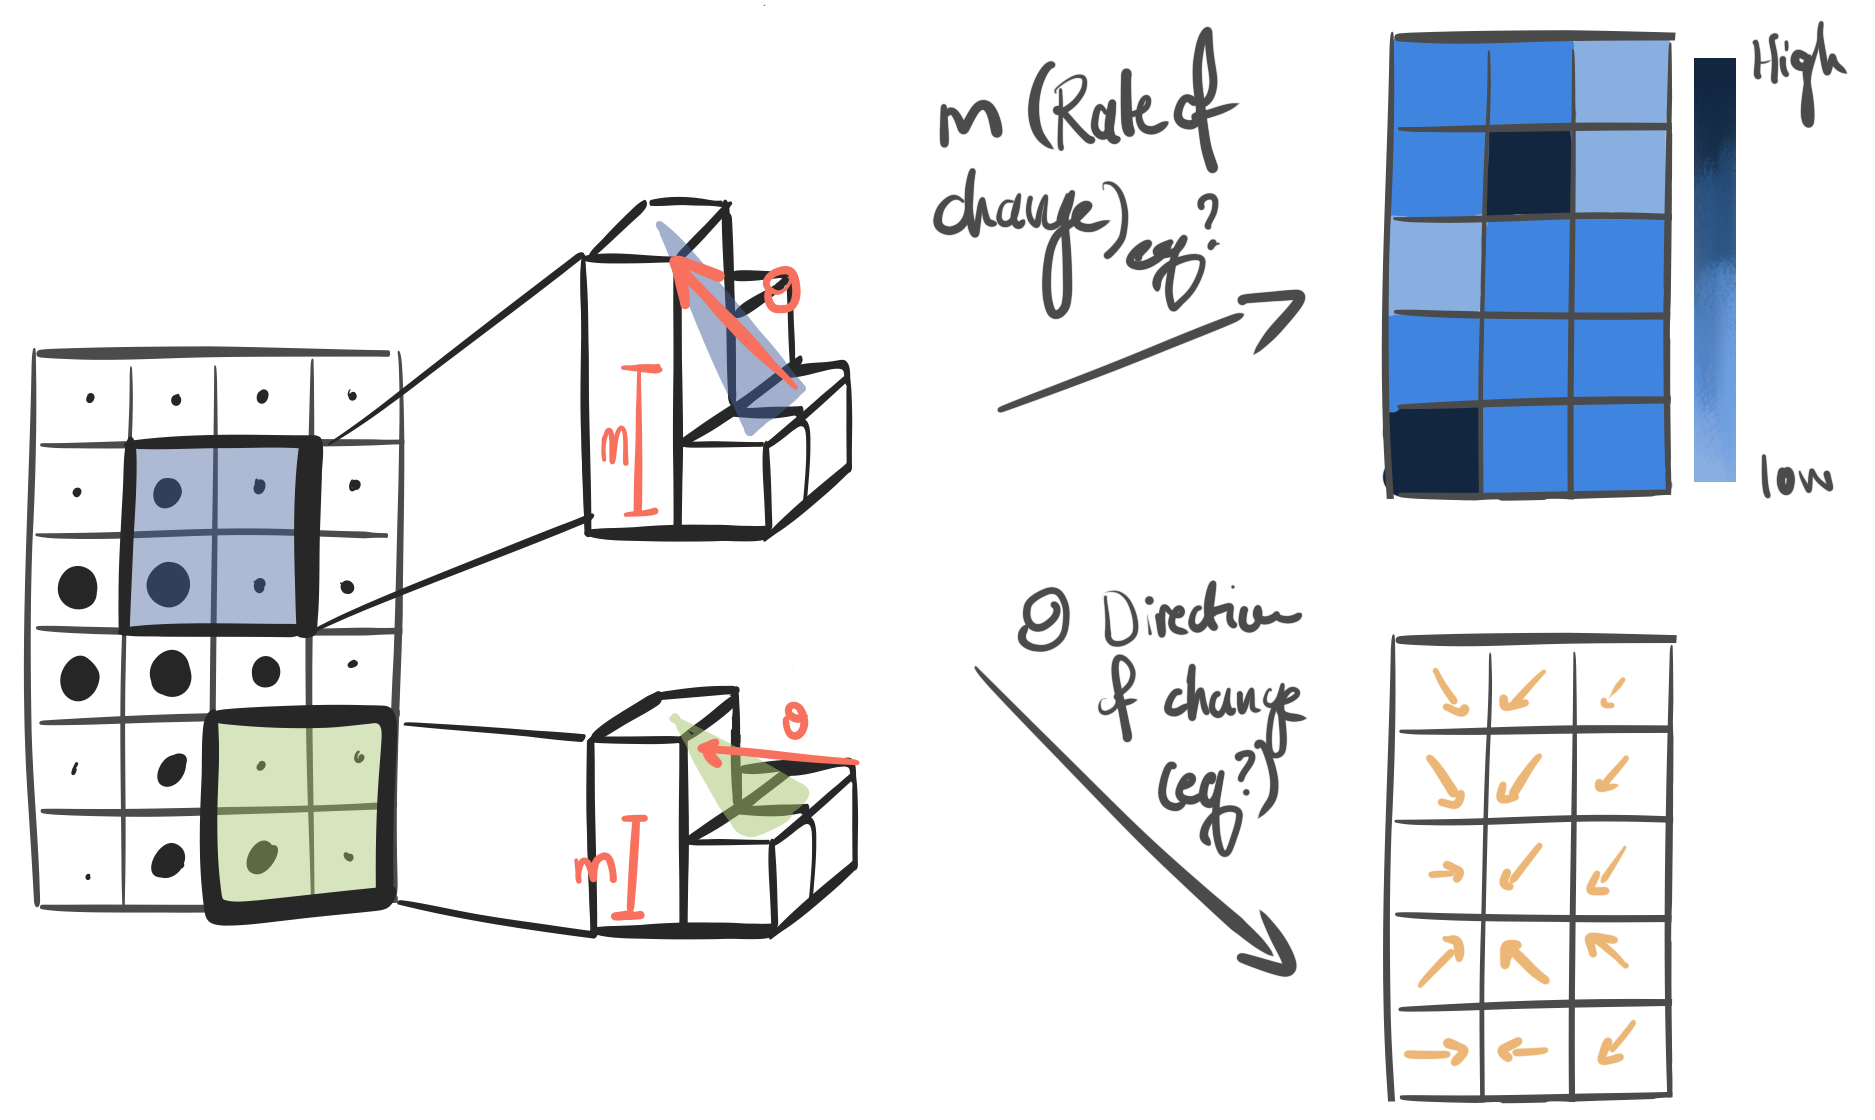 m (Rate of
change) eq?
High
low
m
θ
m
θ
θ Direction
of change
(eq?)